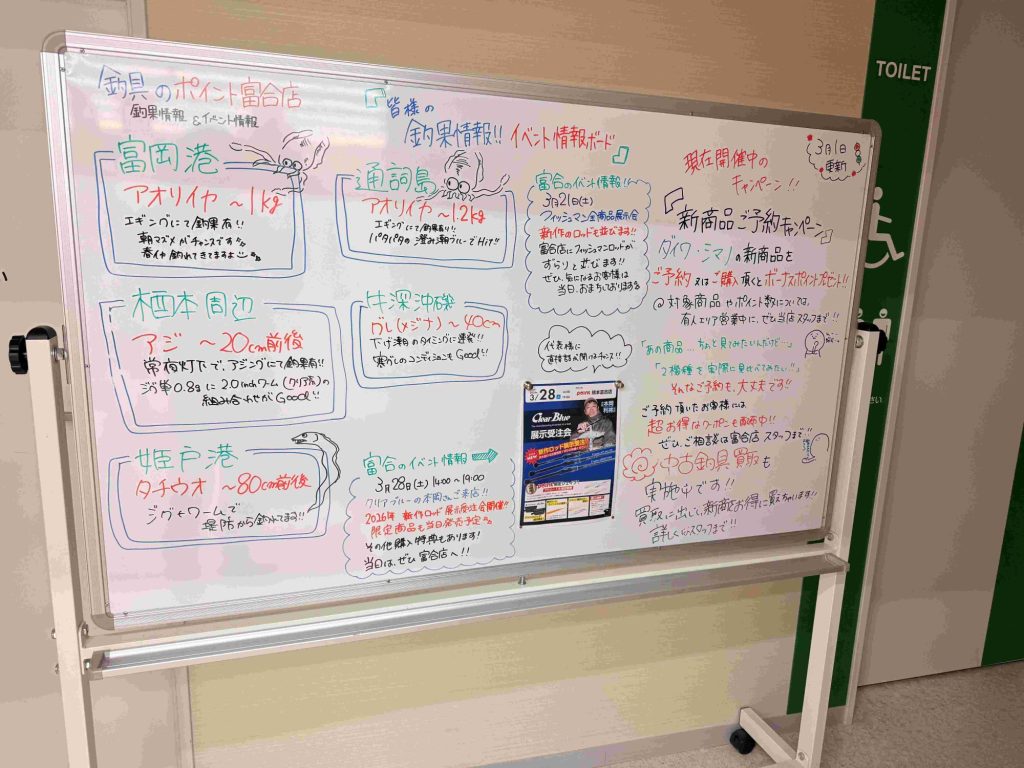 釣具のポイント富合店
釣果情報 & イベント情報
『皆様の
釣果情報!! イベント情報ボード』
3月1日
更新
富岡港
アオリイカ ～1kg
エギングにて釣果有!!
朝マズメがチャンスです
春イカ釣れてきてますよ
通詞島
アオリイカ ～1.2kg
エギングにて釣果有り!!
パタパタの澄み潮ブルーでHit!!
栖本周辺
アジ ～20cm前後
常夜灯下で、アジングにて釣果有!!
ジグ単0.8gに2.0inchワーム(クリア系)の
組み合わせがGood!!
牛深沖磯
グレ(メジナ) ～40cm
下げ潮のタイミングに連発!!
寒グレのコンディションもGood!!
姫戸港
タチウオ ～80cm前後
ジグ+ワームで
堤防から釣れてます!!
富合のイベント情報!!
3月21日(土)
フィッシュマン全商品展示会
新作のロッドも並びます!!
富合店にフィッシュマンロッドが
ずらりと並びます!!
ぜひ、気になるお客様は
当日、おまちしております
代表様に
直接話が聞けるチャンス!!
富合のイベント情報
3月28日(土) 14:00～19:00
クリアブルーの本岡さんご来店!!
2026年 新作ロッド展示受注会開催!!
限定商品も当日発売予定
その他購入特典もあります!
当日は、ぜひ富合店へ!!
3/28
point 熊本富合店
Clear Blue
展示受注会
新作ロッド展示受注!
現在開催中の
キャンペーン!!
『新商品ご予約キャンペーン』
ダイワ・シマノの新商品を
ご予約又はご購入頂くとボーナスポイントプレゼント!!
@対象商品やポイント数については、
ぜひ当店スタッフまで!!
「あの商品…ちょっと見てみたいんだけど…」
「2機種を実際に見比べてみたい…」
そんなご予約も、大丈夫です!!
ご予約頂いたお客様には
超お得なクーポンも配布中!!
ぜひ、ご相談は富合店スタッフまで!!
中古釣具買取も
実施中です!!
買取に出して、新商品をお得に買えちゃいます!!
詳しくはスタッフまで!!
TOILET